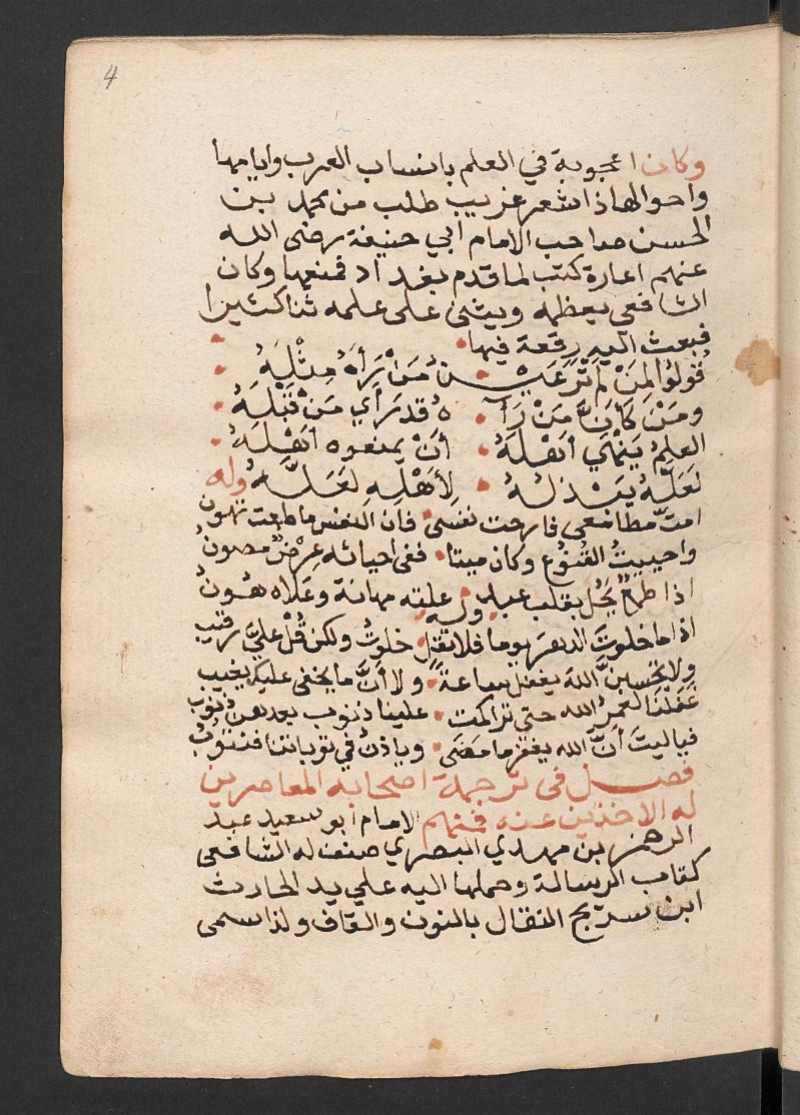 4
وكان اعجوبة في العلم بانساب العرب وايامها
واحوالها ذا شعر غريب طلب من محمد بن
الحسن صاحب الامام ابي حنيفة رضى الله
عنهم اعارة كتب لما قدم بغداد فمنعها وكان
الشافعى يعظمه ويثنى على علمه ثنا كثيرا
فبعث اليه رقعة فيها
قُولُوا لِمَنْ لَمْ تَرَ عَيْــنُ مَنْ رَأَهُ مِثْلَهُ
ومَنْ كَأَنَّ مَنْ رَآ هُ قد رَأي مَنْ قَبْلَهُ
العلمُ يَنْهَي أَهْلَهُ أَنْ يمنعوه أَهْلَهُ
لَعَلَّهُ يَبْذُلُهُ لِأَهْلِهِ لَعَلَّهُ وله
امتّ مطامعي فارحت نفسى فان النفس ما طمعت تهون
واحييتُ القنُوع وكان ميتا ففي احيائه عِرْضٌ مصونُ
اذا طمعٌ يَحُل بقلب عبد علته مهانة وعَلاه هُونُ
وله اذا ما خلوتَ الدهرَ يوما فلا تقل خلوتُ ولكن قُلْ عليَّ رقيب
ولا تحسبنَّ اللهَ يغفل ساعةً ولا أنَّ ما يخفى عليه يغيب
غَفَلْنَا لعمرُ الله حتى تراكمت علينا ذنوب بعدهن ذنوب
فيا ليتَ أنَّ الله يغفر ما مضَى وياذنُ في توباتنا فنتوبُ
فصـل فى ترجمة اصحابه المعاصرين
له الاخذين عنه فمنهم الامام ابو سعيد عبد
الرحمن بن مهدي البصري صنف له الشافعى
كتاب الرسالة وحملها اليه علي يد الحارث
ابن سريج النقال بالنون والقاف ولذا سمى